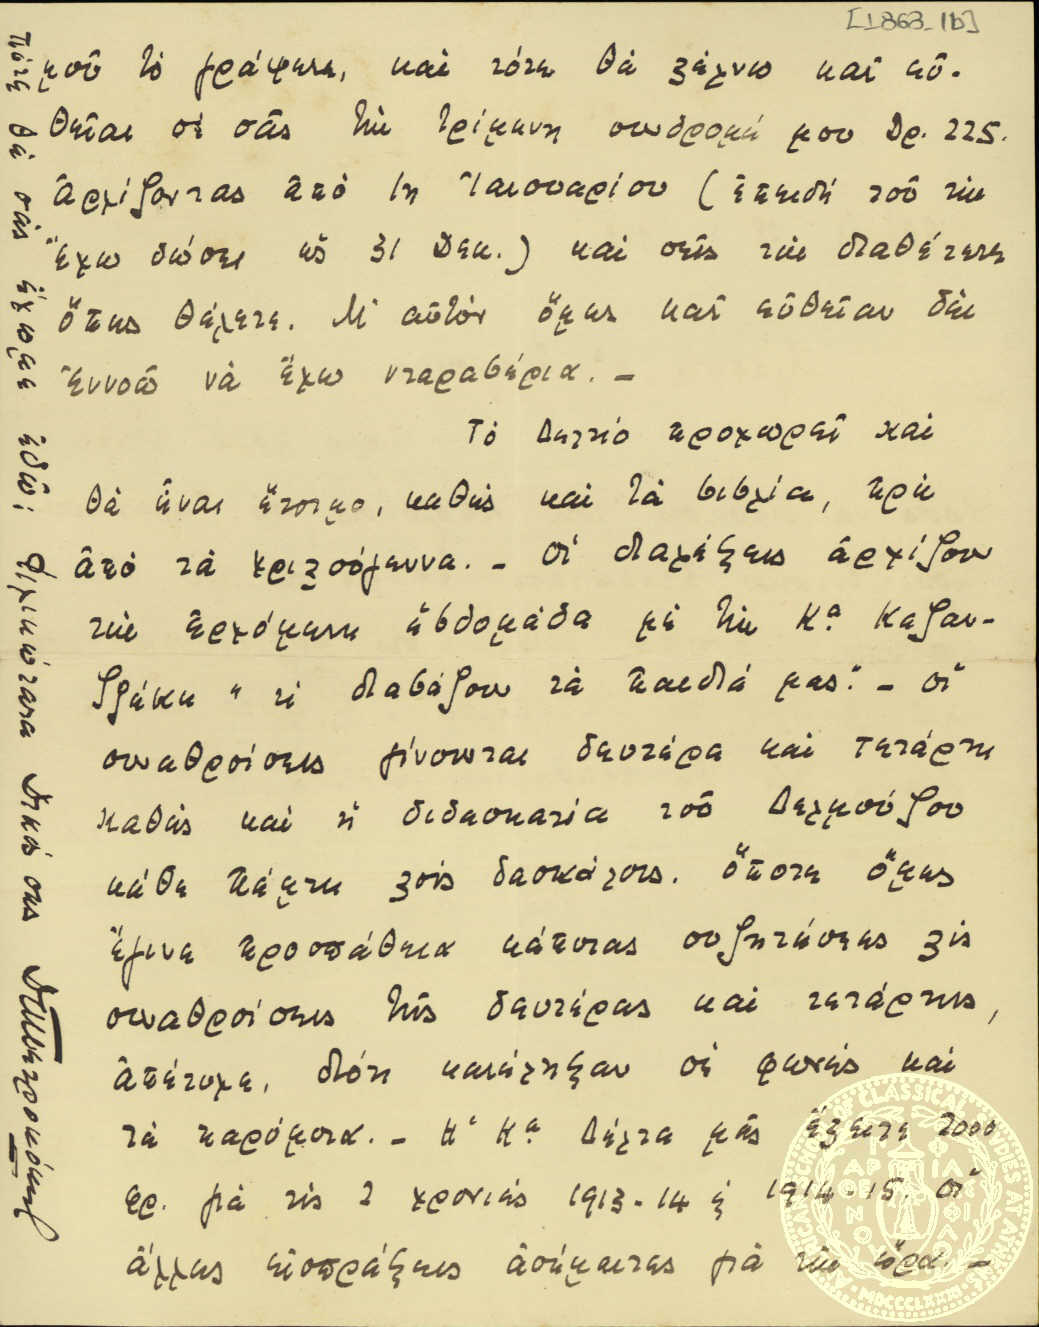 [1863-1b]
μοῦ τὸ γράψετε, καὶ τότε θὰ στέλνω κατ' εὐ-
θεῖαν σὲ σᾶς τὴν τρίμηνη συνδρομή μου Δρ. 225.
ἀρχίζοντας ἀπὸ 1η Ἰανουαρίου (ἐπειδὴ τοῦ τὴν
ἔχω δώσει ὣς 31 Δεκ.) καὶ σεῖς τὴν διαθέτετε
ὅπως θέλετε. Μ' αὐτὸν ὅμως κατ' εὐθεῖαν δὲν
ἐννοῶ νὰ ἔχω νταραβέρια. –
Τὸ Δελτίο προχωρεῖ καὶ
θὰ εἶναι ἕτοιμο, καθὼς καὶ τὰ βιβλία, πρὶν
ἀπὸ τὰ Χριστούγεννα. – Οἱ διαλέξεις ἀρχίζουν
τὴν ἐρχόμενη ἑβδομάδα μὲ τὴν Κα Καζαν-
τζάκη "τί διαβάζουν τὰ παιδιά μας". – Οἱ
συναθροίσεις γίνουνται δευτέρα καὶ τετάρτη
καθὼς καὶ ἡ διδασκαλία τοῦ Δελμούζου
κάθε πέμπτη στοὺς δασκάλους. Ὅποτε ὅμως
ἔγινε προσπάθεια κάποιας συζητήσεως στὶς
συναθροίσεις τῆς δευτέρας καὶ τετάρτης,
ἀπέτυχε, διότι κατέληξαν σὲ φωνὲς καὶ
τὰ παρόμοια. – Ἡ Κα Δέλτα μᾶς ἔστειλε 2000
Δρ. γιὰ τὶς 2 χρονιὲς 1913-14 ἢ 1914-15. Οἱ
ἄλλες εἰσπράξεις ἀσήμαντες γιὰ τὴν ὥρα. –
Πότε θὰ σᾶς ἔχωμε ἐδῶ; Φιλικώτατα Δικός σας
AMERICAN SCHOOL OF CLASSICAL STUDIES AT ATHENS
MDCCCLXXXI